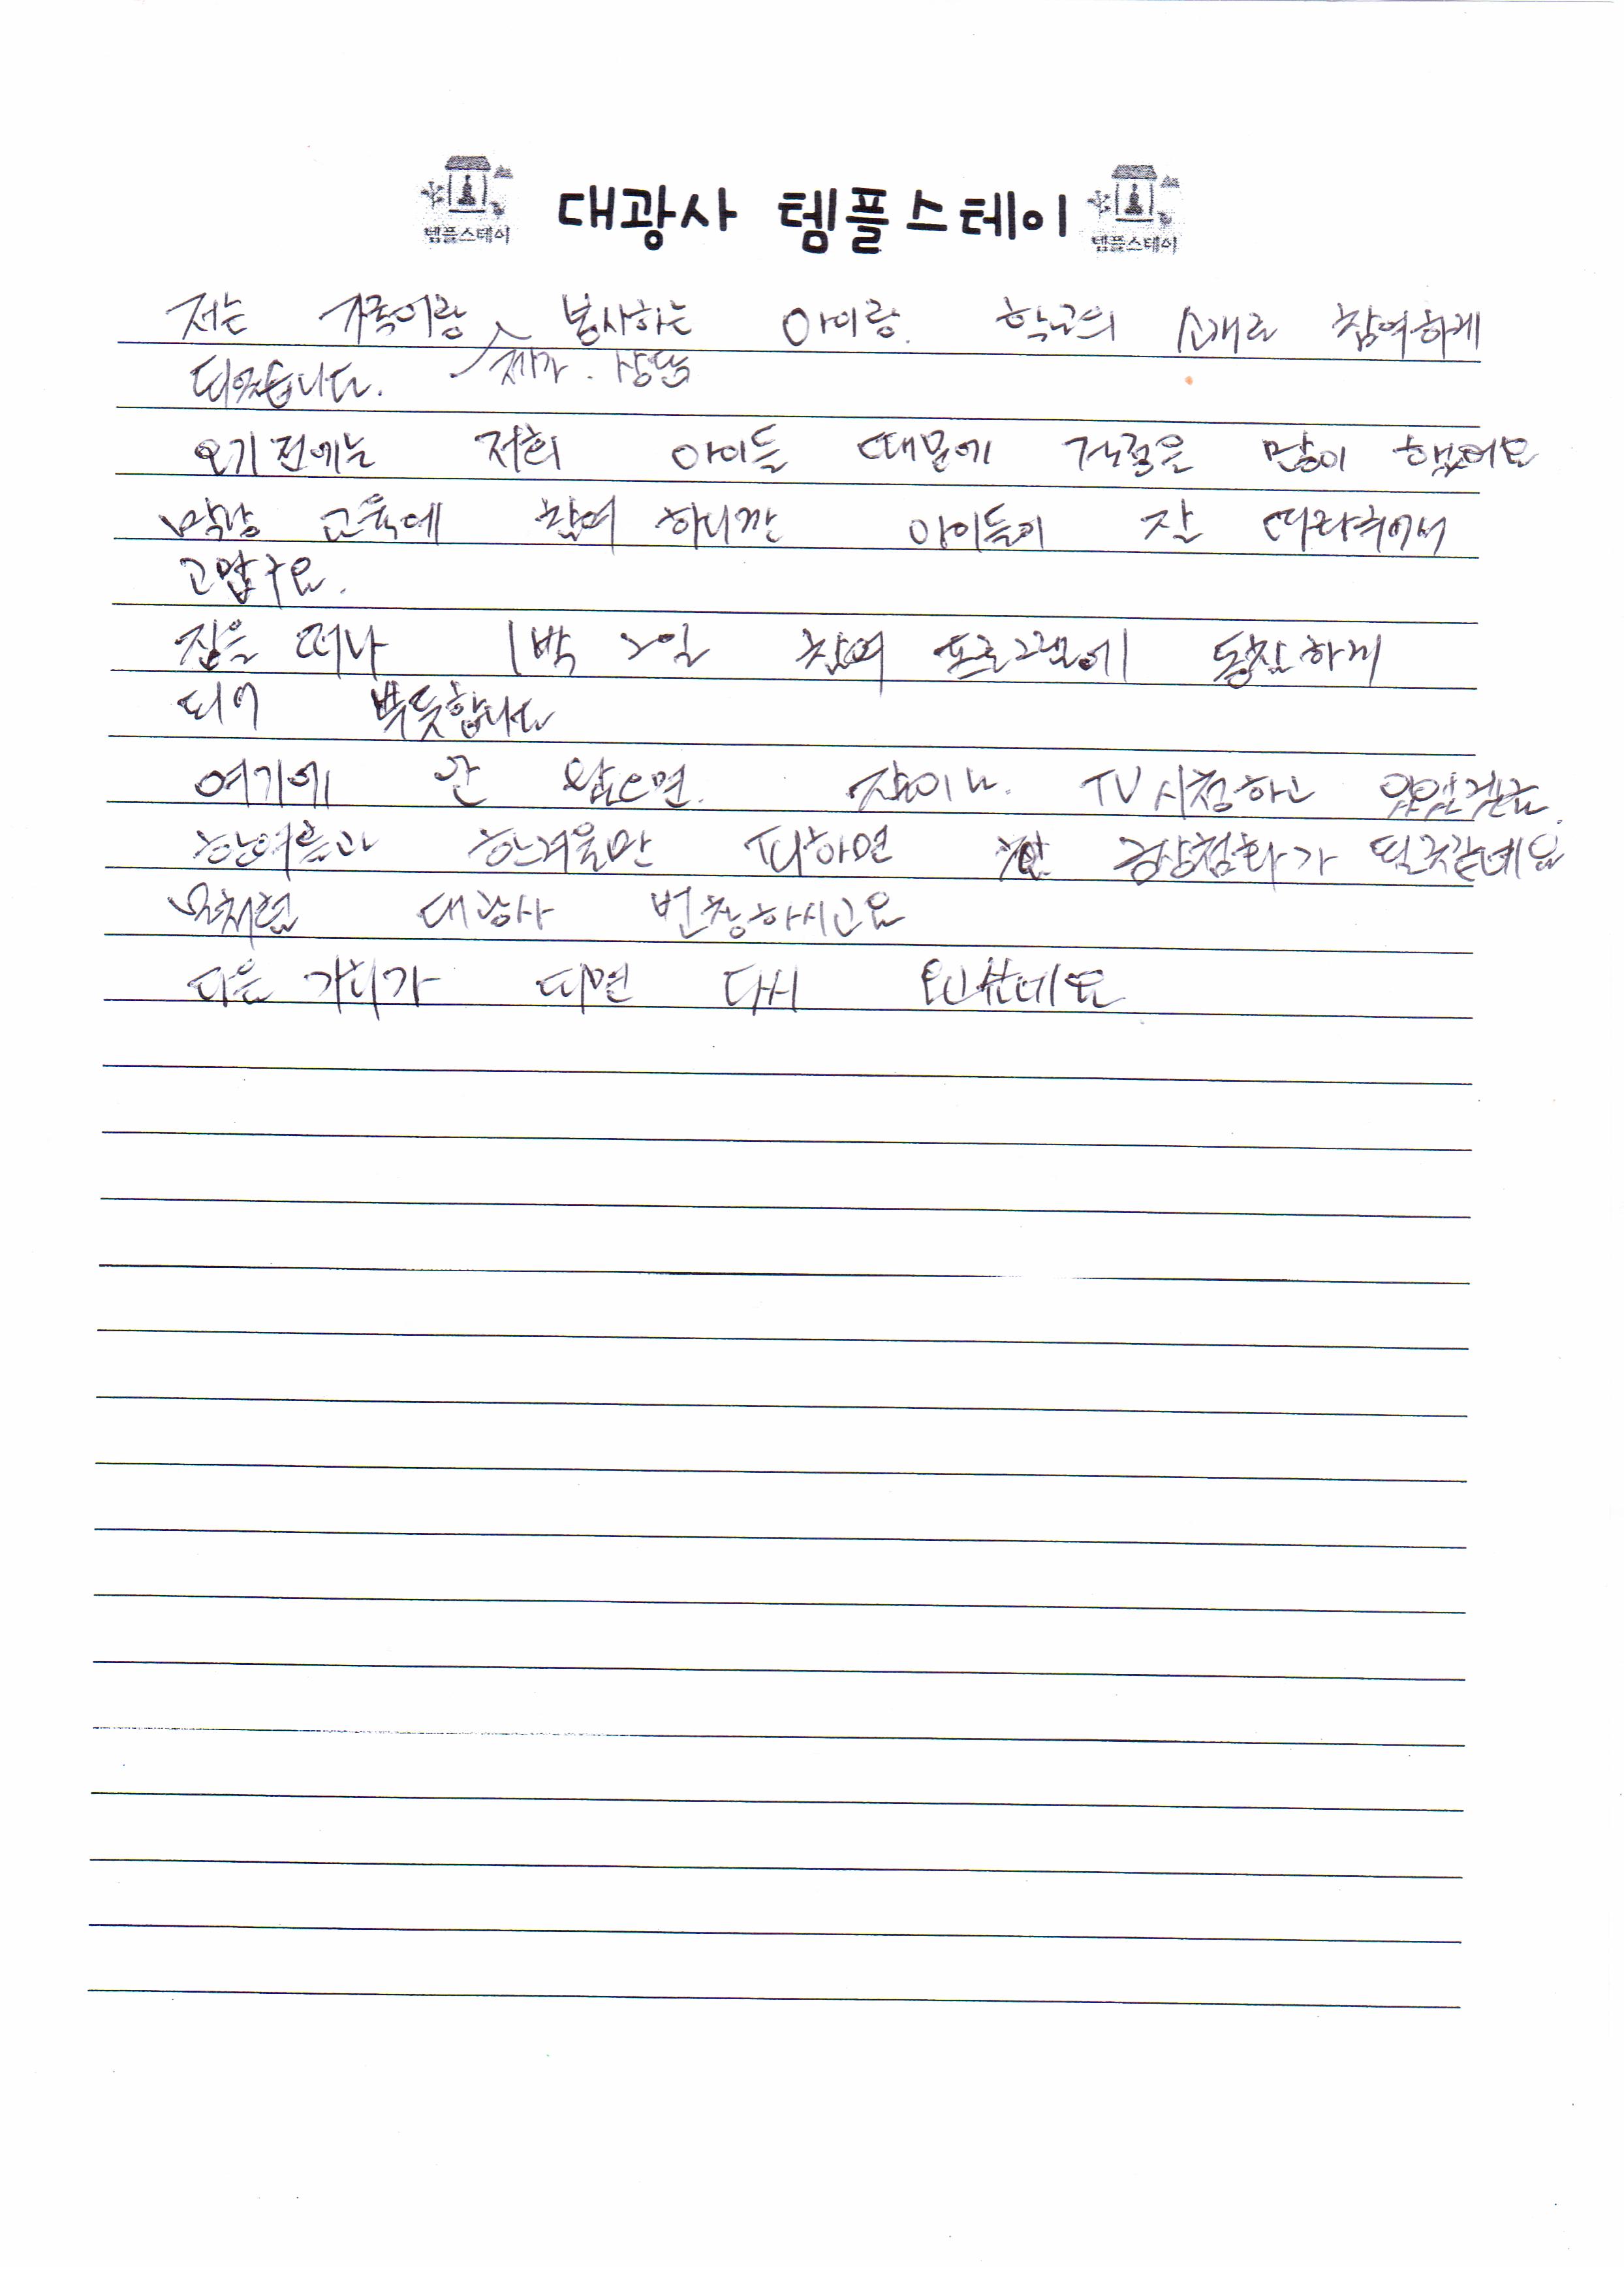 템플스테이 대광사 템플스테이 템플스테이
저는 가족이랑 봉사하는 아이랑. 학교의 소개로 참여하게
제가. 상담
되었습니다.
오기전에는 저희 아이들 때문에 걱정을 많이 했어요
막상 교육에 참여 하니깐 아이들이 잘 따라주어서
고맙구요.
집을 떠나 1박 2일 참여 프로그램에 동참하게
되어 뿌듯합니다
여기에 안 왔으면. 잠이나. TV시청하고 있었겠죠.
한여름과 한겨울만 피하면 금상첨화가 될것같네요
모처럼 대광사 번창하시고요
다음 기회가 되면 다시 오고싶네요